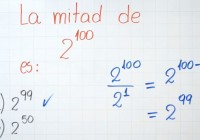 La mitad de
2^100
es:
) 2^99 ✓
) 2^50
2^100 / 2^1 = 2^100-
= 2^99